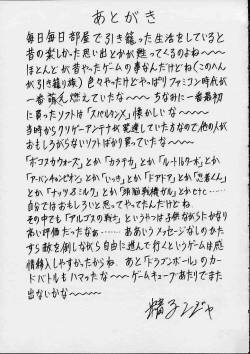 あとがき
毎日毎日部屋で引き籠った生活をしていると
昔の楽しかった思い出とかが甦ってくるのよね〜〜
ほとんどが昔やったゲームの事なんだけどね(このへん
が引き籠り族)色々やったけどやっぱりファミコン時代が
一番萌え燃えていたな〜〜 ちなみに一番最初
に買ったソフトは「スパルタンX」懐かしいな〜
当時からクソゲーアンテナが発達していたあなので、他の人が
おもしろがらないソフトばかり買っていたな〜〜
「ボコスカウォーズ」とか「カラテカ」とか「ルート16ターボ」とか
「アーバンチャンピオン」とか「いっき」とか「ドアドア」とか「忍者くん」
とか「ナッツ&ミルク」とか「頭脳戦艦ガル」とかetc……
自分ではおもしろいと思ってやってたんだけどね。
その中でも「アルゴスの戦士」というやつは子供ながらにかなり
高い評価だったなぁ…… ああいうメッセージなしのかた
すら敵を倒しながら自由に進んで行くというゲームは感
情移入しやすかったからね。あと「ドラゴンボール」のカ
ードバトルもハマったな〜〜 ゲームキューブあたりでまた
出ないかな〜〜〜